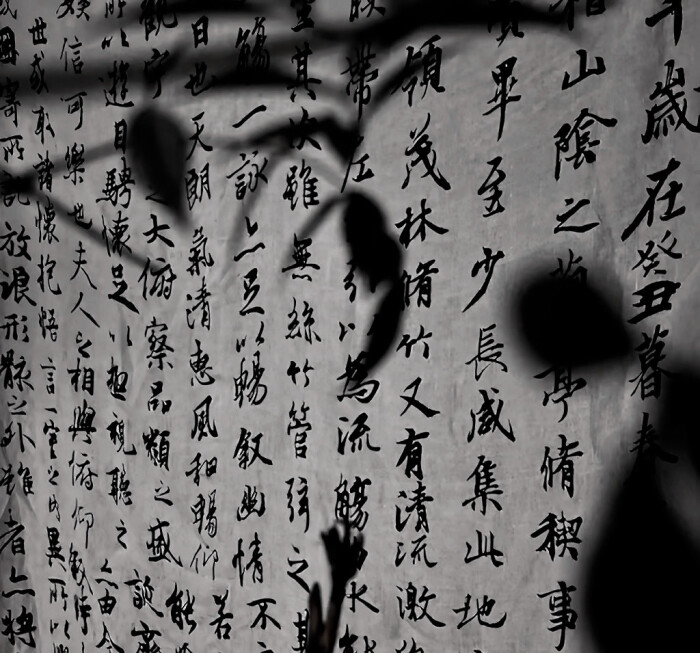 歲在癸丑暮春
山陰之蘭亭脩禊事
畢至少長咸集此地
領茂林脩竹又有清流激
帶左引以為流觴水
其次雖無絲竹管弦之
觴一詠亦足以暢敘幽情不
日也天朗氣清惠風和暢仰若
觀宇之大俯察品類之盛能
所以遊目騁懷足以極視聽之亦由今
信可樂也夫人之相與俯仰
世或取諸懷抱悟言一室之內異所以興
因寄所託放浪形骸之外雖者亦將